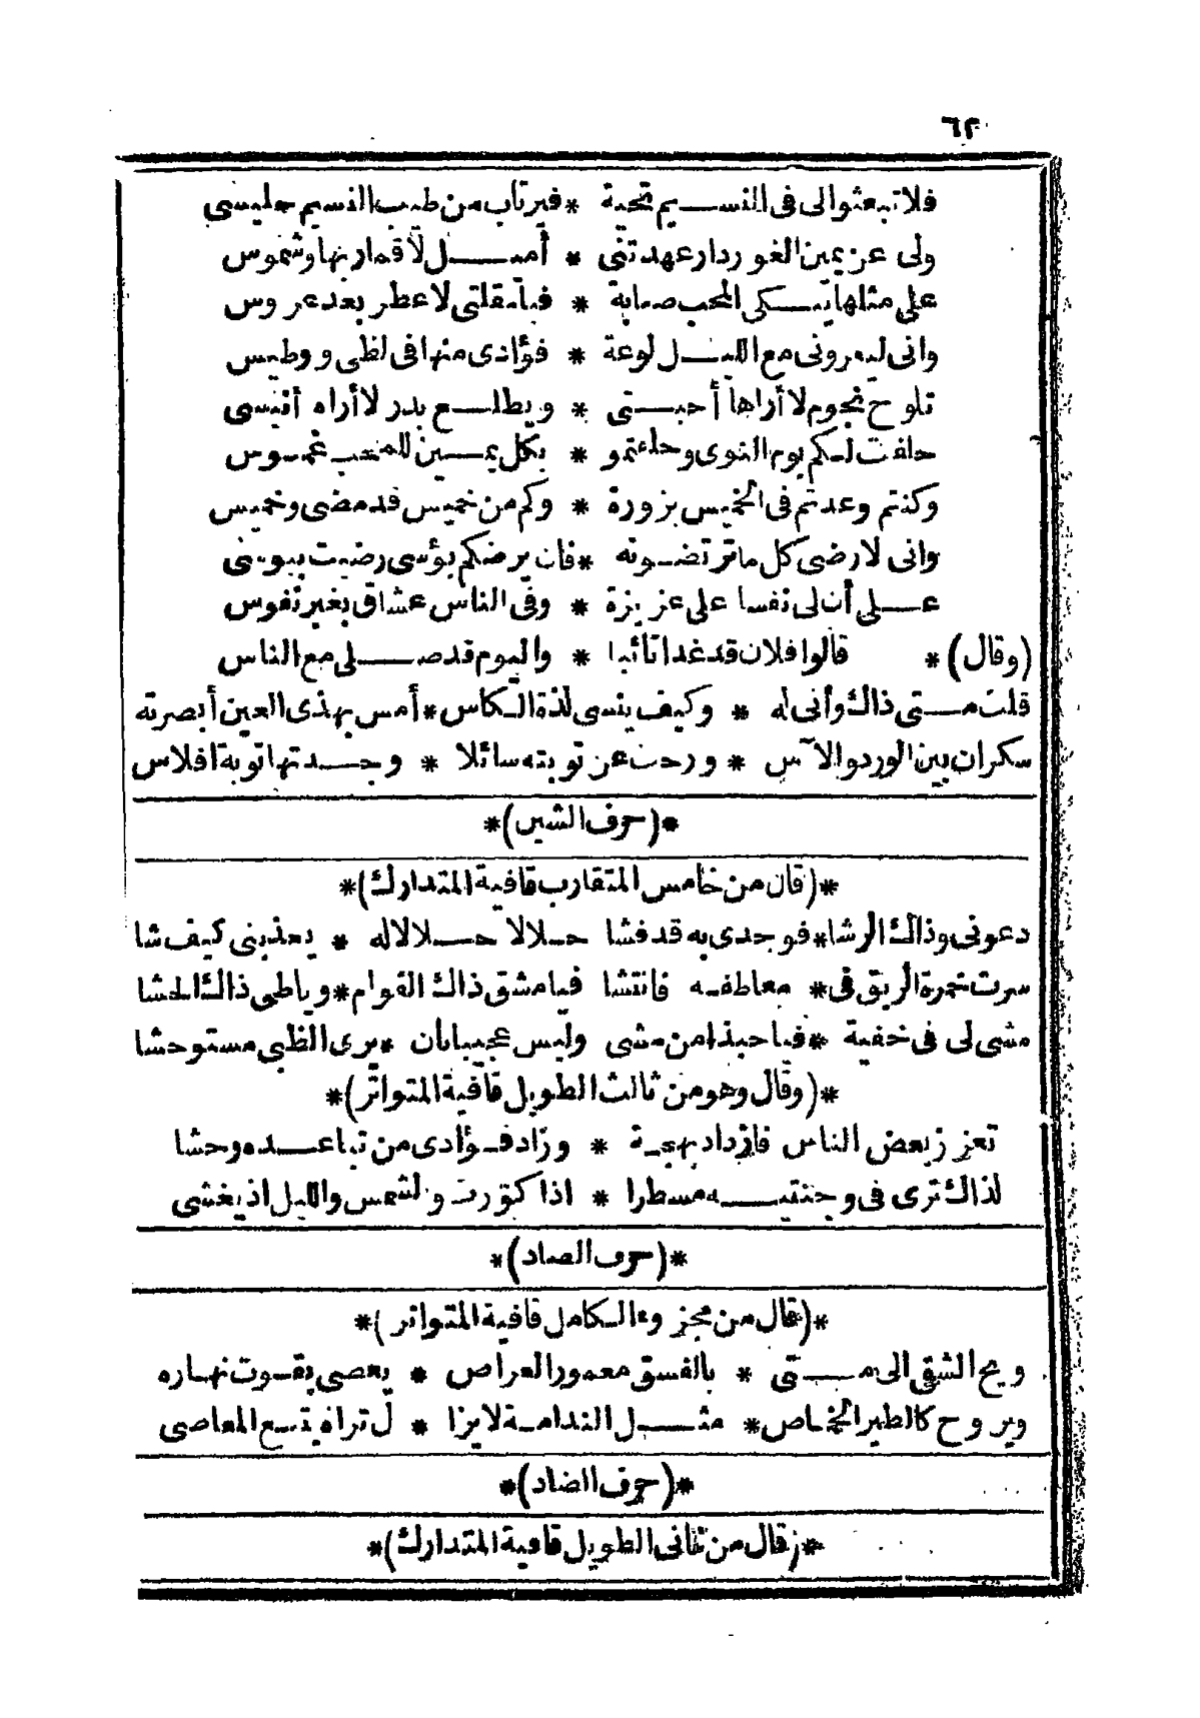 ٦٢
فلا تبعثوا لى فى النسيم تحية * فيرتاب من طيب النسيم جليسى
ولى عن يمين الغور دار عهدتنى * أميل لأقمار بها وشموس
على مثلها تبكى المحب صبابة * فيا مقلتى لا عطر بعد عروس
وانى ليعرونى مع الليل لوعة * فؤادى منها فى لظى ووطيس
تلوح نجوم لا أراها أحبتى * ويطلع بدر لا أراه أنيسى
حلفت لكم يوم النوى وحلفتمو * بكل يمين للمحب غموس
وكنتم وعدتم فى الخميس بزورة * وكم من خميس قد مضى وخميس
وانى لارضى كل ما ترتضونه * فان يرضكم بؤسى رضيت ببوسى
على أن لى نفسا على عزيزة * وفى الناس عشاق بغير نفوس
(وقال) * قالوا فلان قد غدا تائبا * واليوم قد صلى مع الناس
قلت متى ذاك وأنى له * وكيف ينسى لذة الكاس * أمس بهذى العين أبصرته
سكران بين الورد والآس * ورحت عن توبته سائلا * وجدتها توبة افلاس
*(حرف الشين)*
*(قال من خامس المتقارب قافية المتدارك)*
دعونى وذاك الرشا * فوجدى به قد فشا حلالا حلالا له * يعذبنى كيف شا
سرت خمرة الريق فى * معاطفه فانتشا فيا مشق ذاك القوام * ويا طى ذاك الحشا
مشى لى فى خفية * فيا حبذا من مشى وليس عجيبا بأن * يرى الظبى مستوحشا
*(وقال وهو من ثالث الطويل قافية المتواتر)*
تعزز بعض الناس فازداد بهجة * وزاد فؤادى من تباعده وحشا
لذاك ترى فى وجنتيه مسطرا * اذا كورت والشمس والليل اذ يغشى
*(حرف الصاد)*
*(قال من مجزوء الكامل قافية المتواتر)*
ويح الشقى الى متى * بالفسق معمور العراص * يعصى بقوت نهاره
ويروح كالطير الخماص * مثل الندامة لا يزا * ل تراه تسع المعاصى
*(حرف الضاد)*
*(قال من ثانى الطويل قافية المتدارك)*